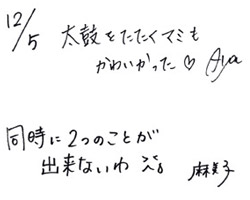 12/5 太鼓をたたくマミも
かわいかった♡ Aya
同時に2つのことが
出来ないわ
麻美子